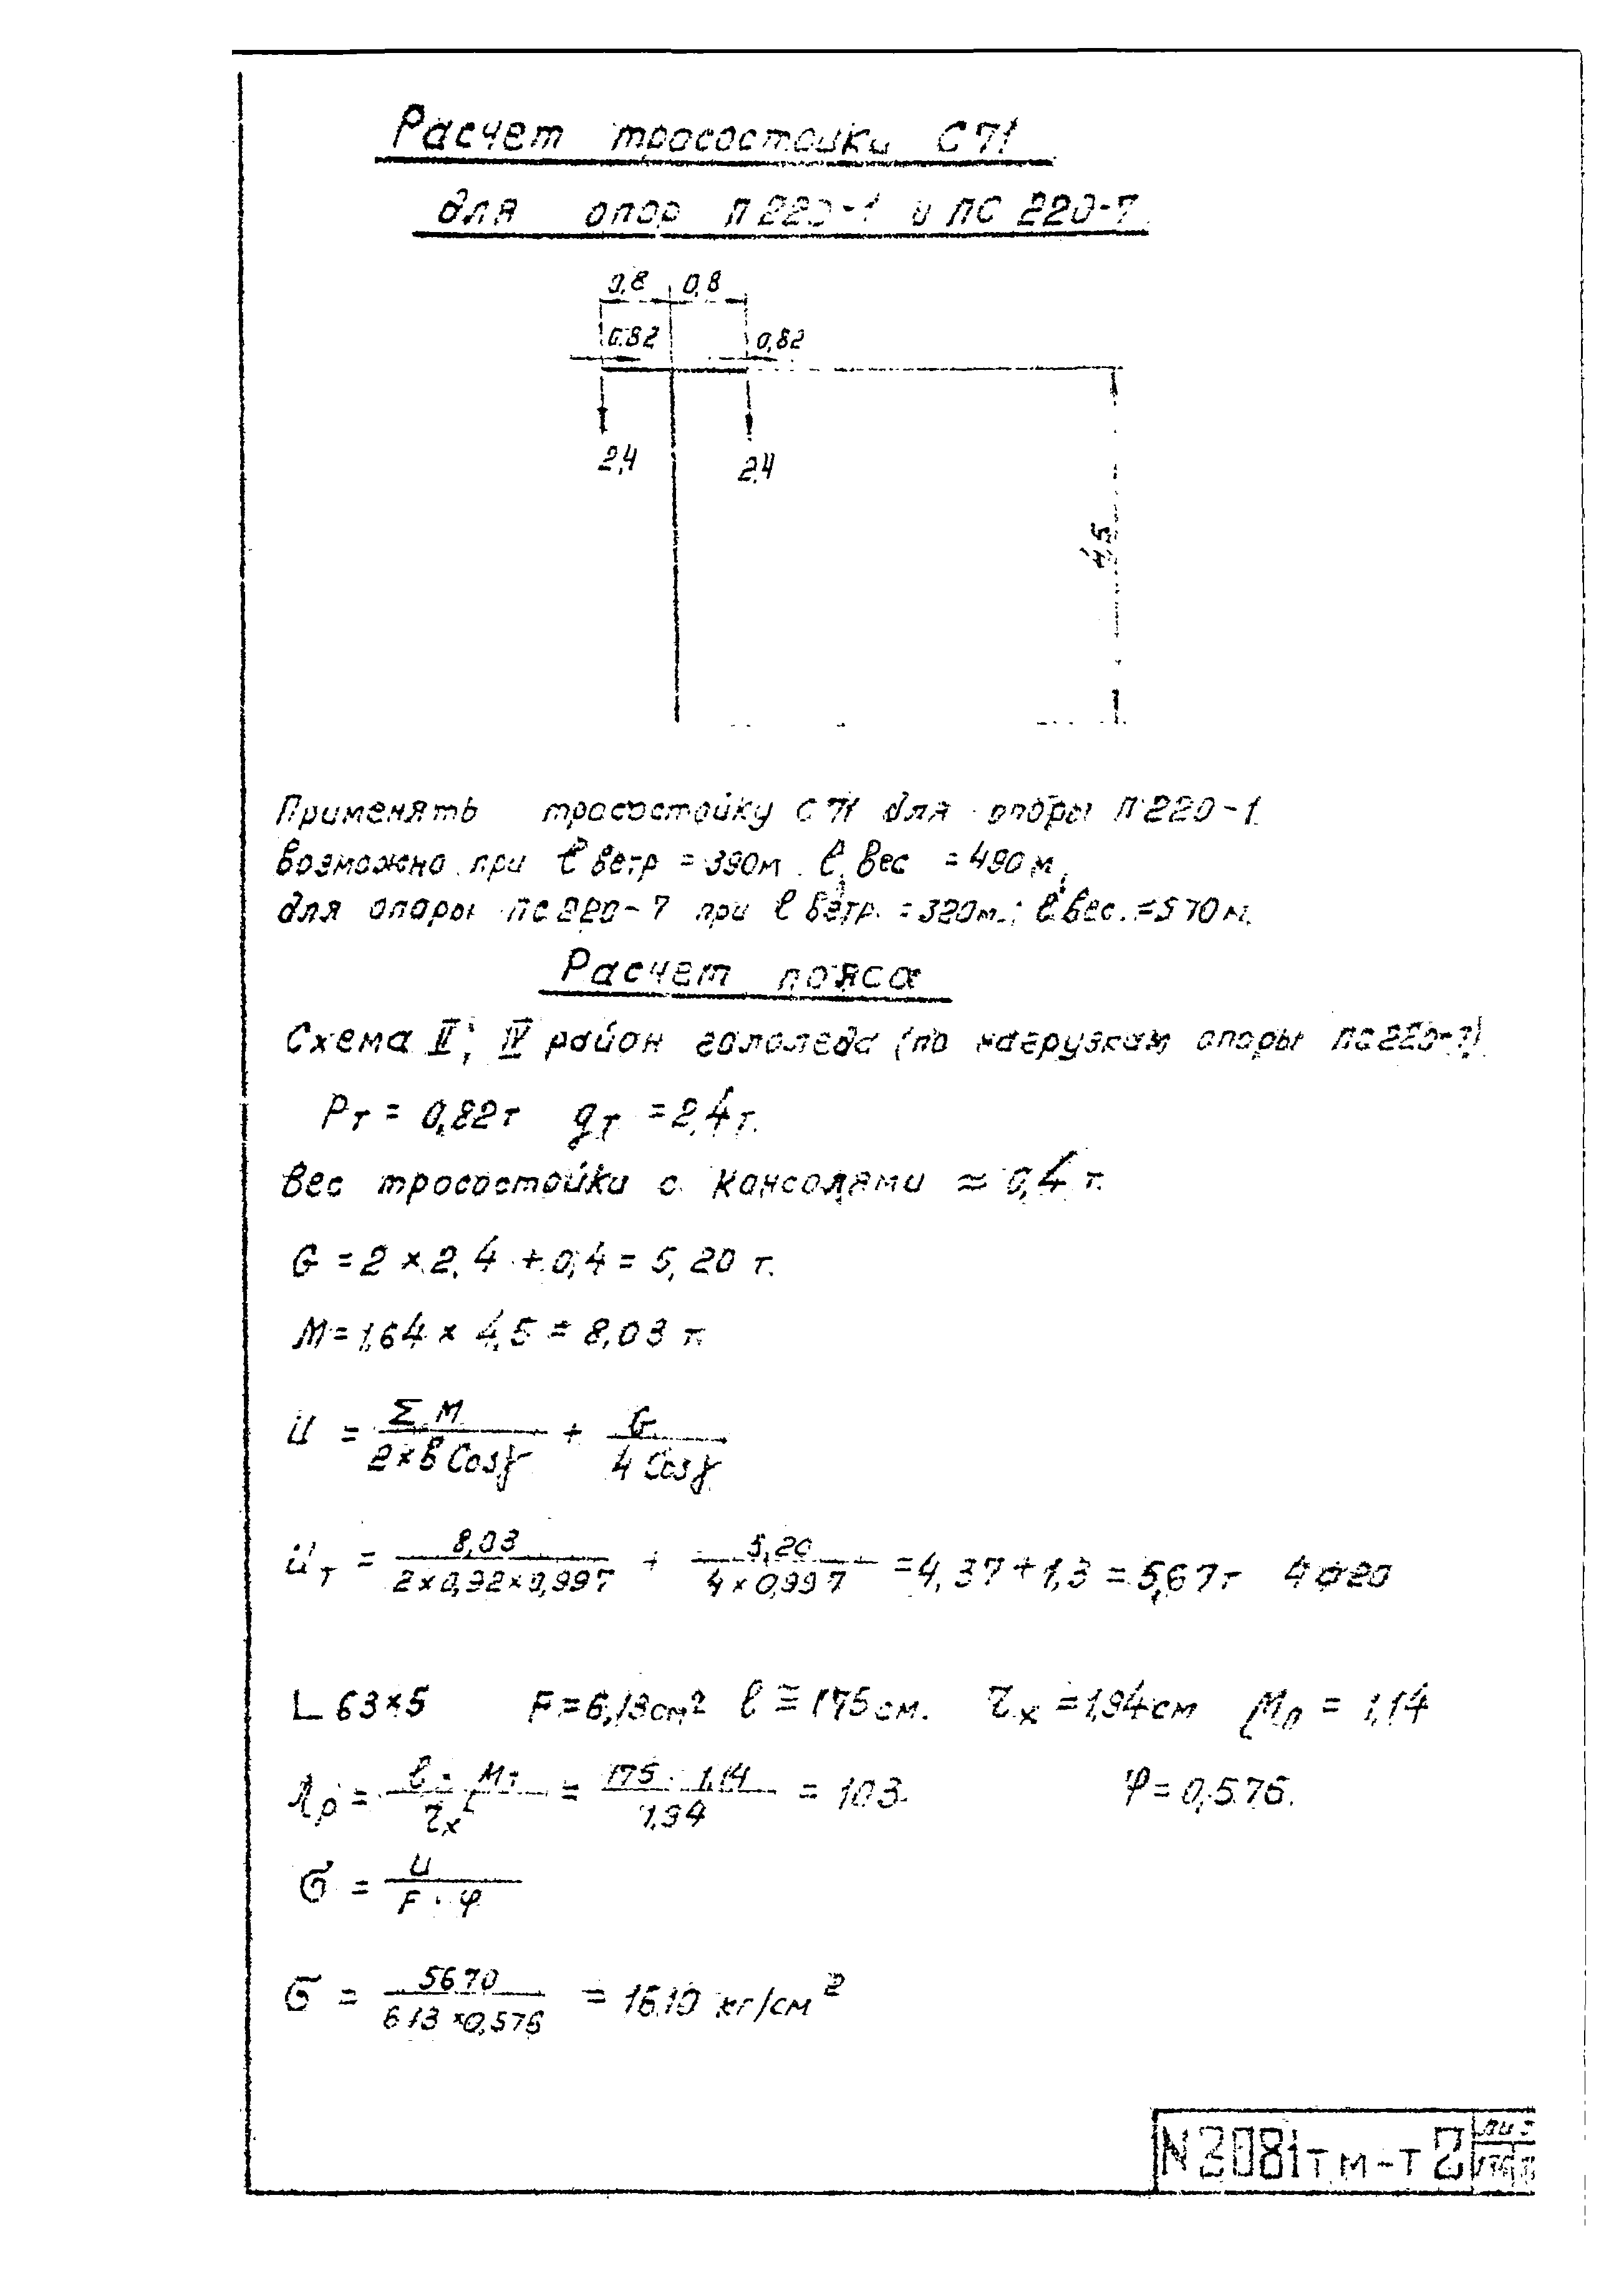 Расчет тросостойки С71
для опор П220-1 и ПС 220-7.
0,8 0,8
0.82 0,82
2,4 2,4
4,5
Применять тросостойку С71 для опоры П220-1
возможно при ℓ ветр = 390м. ℓ вес = 490м,
для опоры ПС220-7 при ℓ ветр. = 320м.; ℓ вес. = 570м.
Расчет пояса
Схема II; IV район гололеда (по нагрузкам опоры ПС220-7)
Pт = 0,82т gт = 2,4т.
Вес тросостойки с консолями ≈ 0,4 т.
G = 2 × 2,4 + 0,4 = 5,20 т.
M = 1,64 × 4,5 = 8,03 т.
U = ΣM / 2×в Cosγ + G / 4 Cosγ
Uт = 8,03 / 2×0,92×0,997 + 5,20 / 4×0,997 = 4,37 + 1,3 = 5,67т 4ф20
L 63×5 F = 6,13см² ℓ ≅ 175см. τx = 1,94см μp = 1,14
λp = 175 · 1,14 / 1,94 = 103. φ = 0,576.
σ = U / F · φ
σ = 5670 / 6,13 × 0,576 = 1610 кг/см²
N3081тм-т2